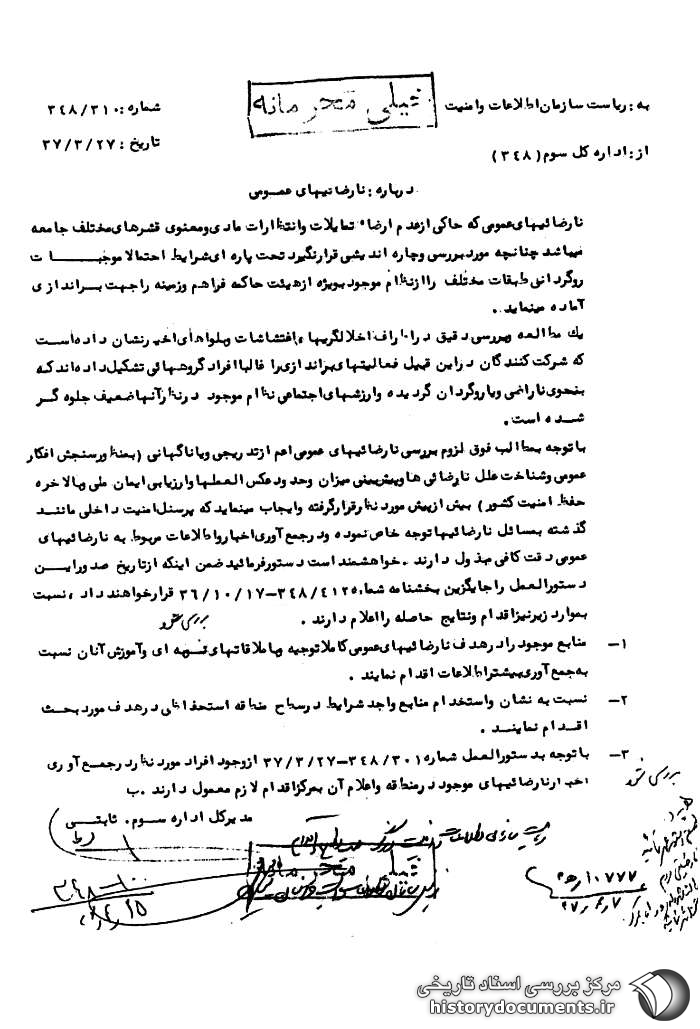 خیلی محرمانه
به : ریاست سازمان اطلاعات و امنیت
شماره : ۳۴۸/۳۱۰
از : اداره کل سوم ( ۳۴۸ )
تاریخ : ۳۷/۳/۲۷
درباره : نارضائیهای عمومی
نارضائیهای عمومی که حاکی از عدم ارضاء تمایلات و انتظارات مادی و معنوی قشرهای مختلف جامعه
میباشد چنانچه مورد بررسی و چاره اندیشی قرار نگیرد تحت پاره ای شرایط احتمالا موجبات
روگردانی طبقات مختلف را از نظام موجود بویژه از هیئت حاکمه فراهم و زمینه را جهت براندازی
آماده مینماید .
یک مطالعه و بررسی دقیق در اطراف اخلالگریها ، اغتشاشات و بلواهای اخیر نشان داده است
که شرکت کنندگان در این قبیل فعالیتهای براندازی را غالبا افراد گروههائی تشکیل داده اند که
بنحوی ناراضی و یا روگردان گردیده و ارزشهای اجتماعی نظام موجود در نظر آنها ضعیف جلوه گر
شده است .
با توجه بمطالب فوق لزوم بررسی نارضائیهای عمومی اعم از تدریجی و یا ناگهانی ( بمنظور سنجش افکار
عمومی و شناخت علل نارضائی ها و پیش بینی میزان وحدود عکس العملها و ارزیابی ایمان ملی و بالاخره
حفظ امنیت کشور ) بیش از پیش مورد نظر قرار گرفته و ایجاب مینماید که پرسنل امنیت داخلی مانند
گذشته بمسائل نارضائیها توجه خاص نموده و در جمع آوری اخبار و اطلاعات مربوط به نارضائیهای
عمومی دقت کافی مبذول دارند . خواهشمند است دستور فرمائید ضمن اینکه از تاریخ صدور این
دستورالعمل را جایگزین بخشنامه شماره ۳۴۸/۴۱۲۵-۳۶/۱۰/۱۷ قرار خواهند داد ، نسبت
بموارد زیر نیز اقدام و نتایج حاصله را اعلام دارند .
بررسی شود
۱- منابع موجود را در هدف نارضائیهای عمومی کاملا توجیه و با ملاقاتهای و آموزش آنان نسبت
به جمع آوری بیشتر اطلاعات اقدام نمایند .
۲- نسبت به نشان و استخدام منابع واجد شرایط در سطح منطقه استحفاظی در هدف مورد بحث
اقدام نمایند .
۳- با توجه بدستورالعمل شماره ۳۴۸/۳۰۱-۳۷/۳/۲۷ از وجود افراد مورد نظر در جمع آوری
اخبار نارضائیهای موجود در منطقه و اعلام آن بمرکز اقدام لازم معمول دارند . ب
بررسی شود
مدیرکل اداره سوم . ثابتی
خیلی محرمانه
۳۴۸-۱۰۰
۱۰۷۷۷
۳۷/۴/۷
مرکز بررسی اسناد تاریخی
historydocuments.ir